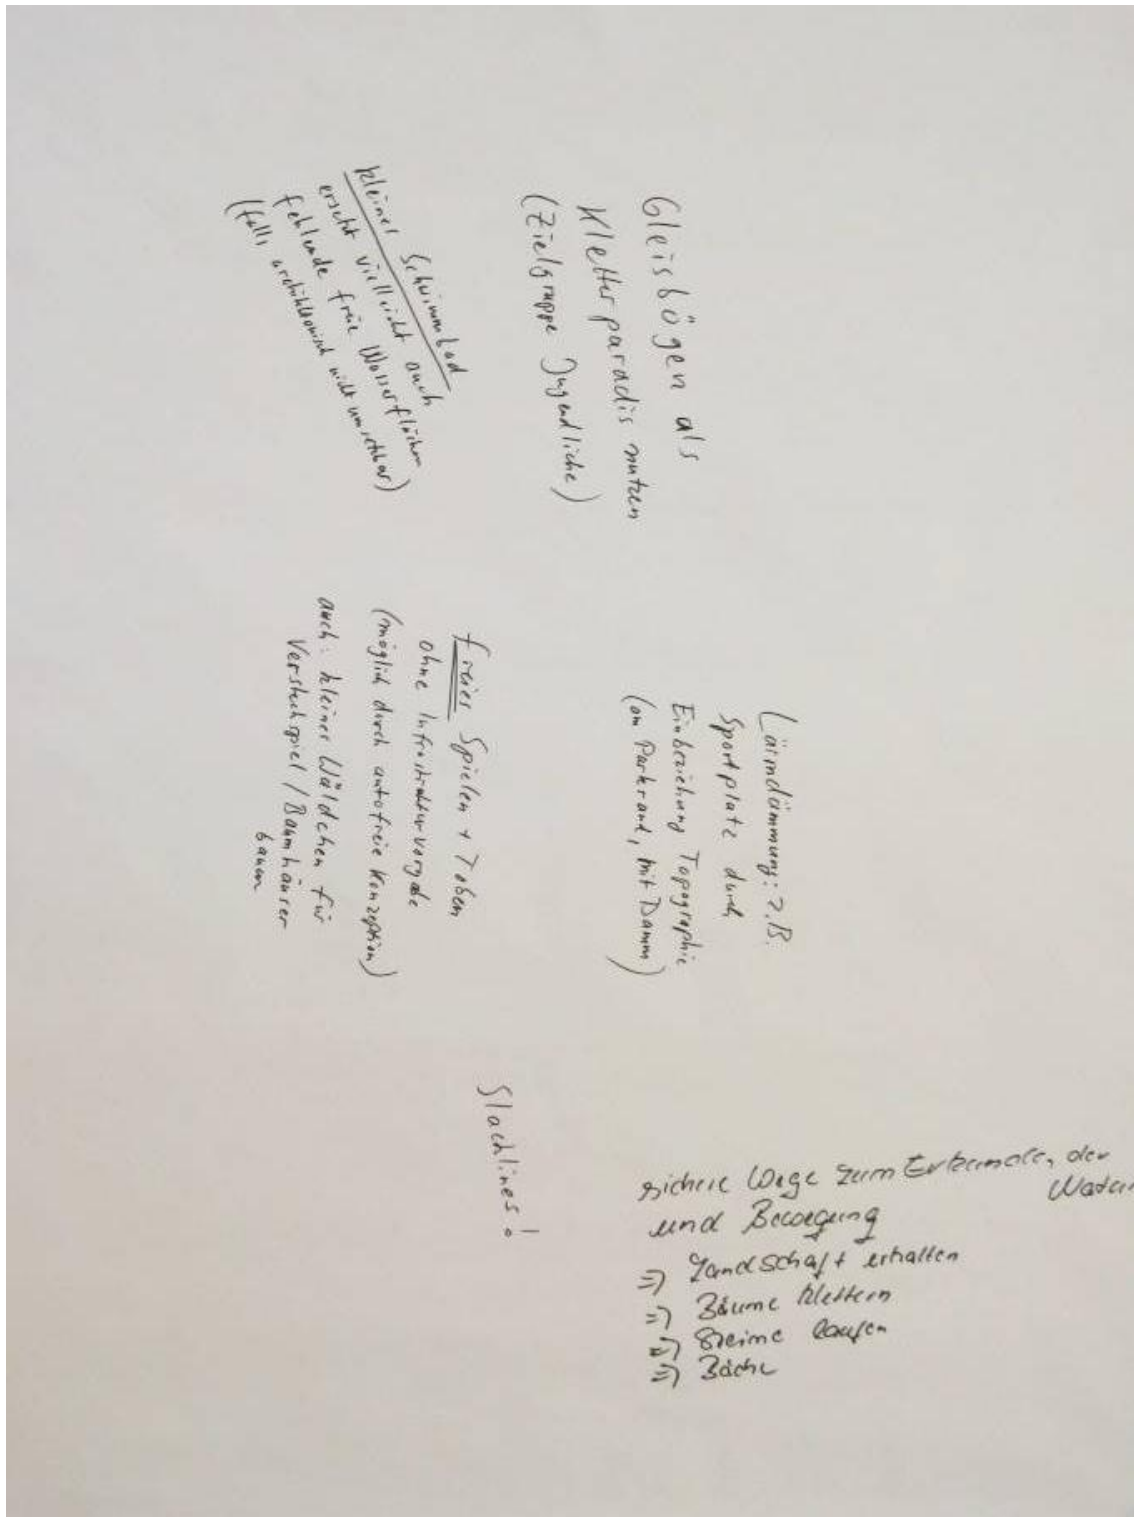 Gleisbögen als
Kletterparadis nutzen
(Zielgruppe Jugendliche)
kleines Schwimmbad
ersetzt vielleicht auch
fehlende freie Wasserflächen
(falls architektonisch nicht umsetzbar)
Lärmdämmung: z.B.
Sportplatz durch
Einbeziehung Topographie
(am Parkrand, mit Damm)
freies Spielen + Toben
ohne Infrastrukturvorgabe
(möglich durch autofreie Konzeption)
auch: kleines Wäldchen für
Versteckspiel / Baumhäuser
bauen
Slacklines!
sichere Wege zum Erkunden, der
Natur
und Bewegung
=> Landschaft erhalten
=> Bäume klettern
=> Steine laufen
=> Bäche